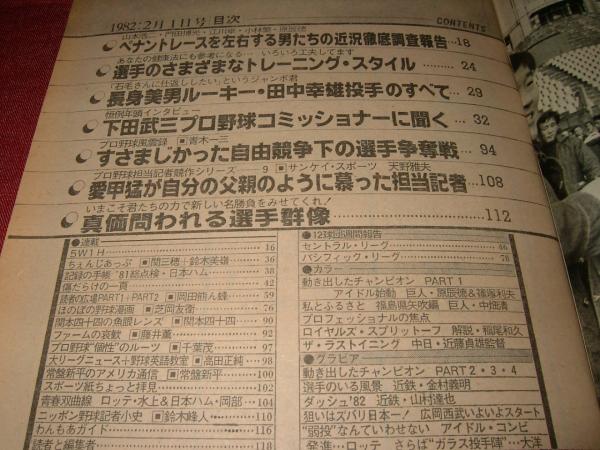 1982・2月1日号/目次
CONTENTS
山本浩二・門田博光・江川卓・小林繁・原辰徳
ペナントレースを左右する男たちの近況徹底調査報告…18
あなたの健康法にも参考になる… いろいろ工夫してます
選手のさまざまなトレーニング・スタイル… 24
「石毛さんに仕返ししたい」というジャンボ君
長身美男ルーキー・田中幸雄投手のすべて… 29
恒例年頭インタビュー
下田武三プロ野球コミッショナーに聞く… 32
プロ野球風雲録 ■青木一三
すさまじかった自由競争下の選手争奪戦… 94
プロ野球担当記者競作シリーズ 9 ■サンケイ・スポーツ 天野雅夫
愛甲猛が自分の父親のように慕った担当記者…108
いまこそ君たちの力で新しい名勝負をみせてくれ!
真価問われる選手群像… 112
●連載
5W1H… 16
ちぇんじあっぷ ■関三穂・鈴木美嶺… 36
記録の手帳 '81総点検・日本ハム… 38
傷だらけの一幕… 42
読者の広場PART1+PART2 ■岡田熊ん蜂… 59
ほのぼの野球漫画 ■芝岡友衛… 76
関本四十四の魚眼レンズ ■関本四十四… 90
ファームの哀歓 ■藤井薫… 92
プロ野球“個性”のルーツ ■千葉茂… 97
大リーグニュース+野球英語教室 ■高田正純… 98
常盤新平のアメリカ通信 ■常盤新平… 100
スポーツ紙ちょっと拝見… 102
青春双曲線 ロッテ・水上&日本ハム・岡部… 104
ニッポン野球記者小史 ■鈴木峰人… 110
わんもあガイド… 116
読者と編集者… 118
●12球団週間報告
セントラル・リーグ… 46
パシフィック・リーグ… 78
●カラー
動き出したチャンピオン PART 1
アイドル始動 巨人・原辰徳&篠塚利夫
私とふるさと 福島県矢吹編 巨人・中畑清
プロフェッショナルの焦点
ロイヤルズ・スプリットーフ 解説・稲尾和久
ザ・ラストイニング 中日・近藤貞雄監督
●グラビア
動き出したチャンピオン PART 2・3・4
選手のいる風景 近鉄・金村義明
ダッシュ'82 近鉄・山村達也
狙いはズバリ日本一! 広岡西武いよいよスタート
“弱投”なんていわせない アイドル・コンビ
発進…ロッテ さらば“ガラス投手陣”…大洋